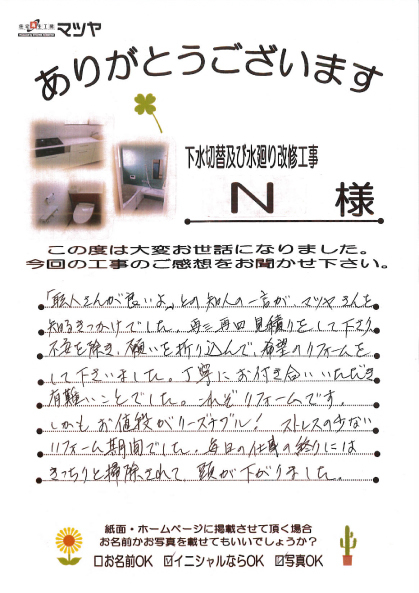 マツヤ
ありがとうございます
下水切替及び水廻り改修工事
N 様
この度は大変お世話になりました。
今回の工事のご感想をお聞かせ下さい。
「職人さんが良いよ。」との知人の一言が、マツヤさんを
知るきっかけでした。再三再四見積りをして下さり
不安を除き、願いを折り込んで、希望のリフォームを
して下さいました。丁寧にお付き合いいただき
有難いことでした。これぞリフォームです。
しかもお値段がリーズナブル! ストレスの少ない
リフォーム期間でした。毎日の仕事の終りには
きっちりと掃除されて、頭が下がりました。
紙面・ホームページに掲載させて頂く場合
お名前かお写真を載せてもいいでしょうか?
□お名前OK ☑イニシャルならOK ☑写真OK